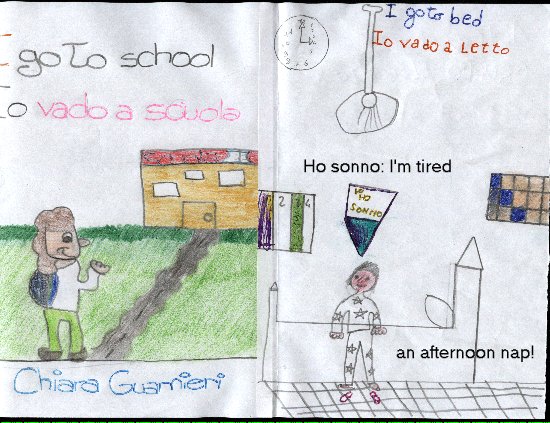 I go To school
Io vado a scuola
Chiara Guarnieri
I go to bed
Io vado a letto
Ho sonno: I'm tired
IO HO
SONNO
2 3 4
an afternoon nap!